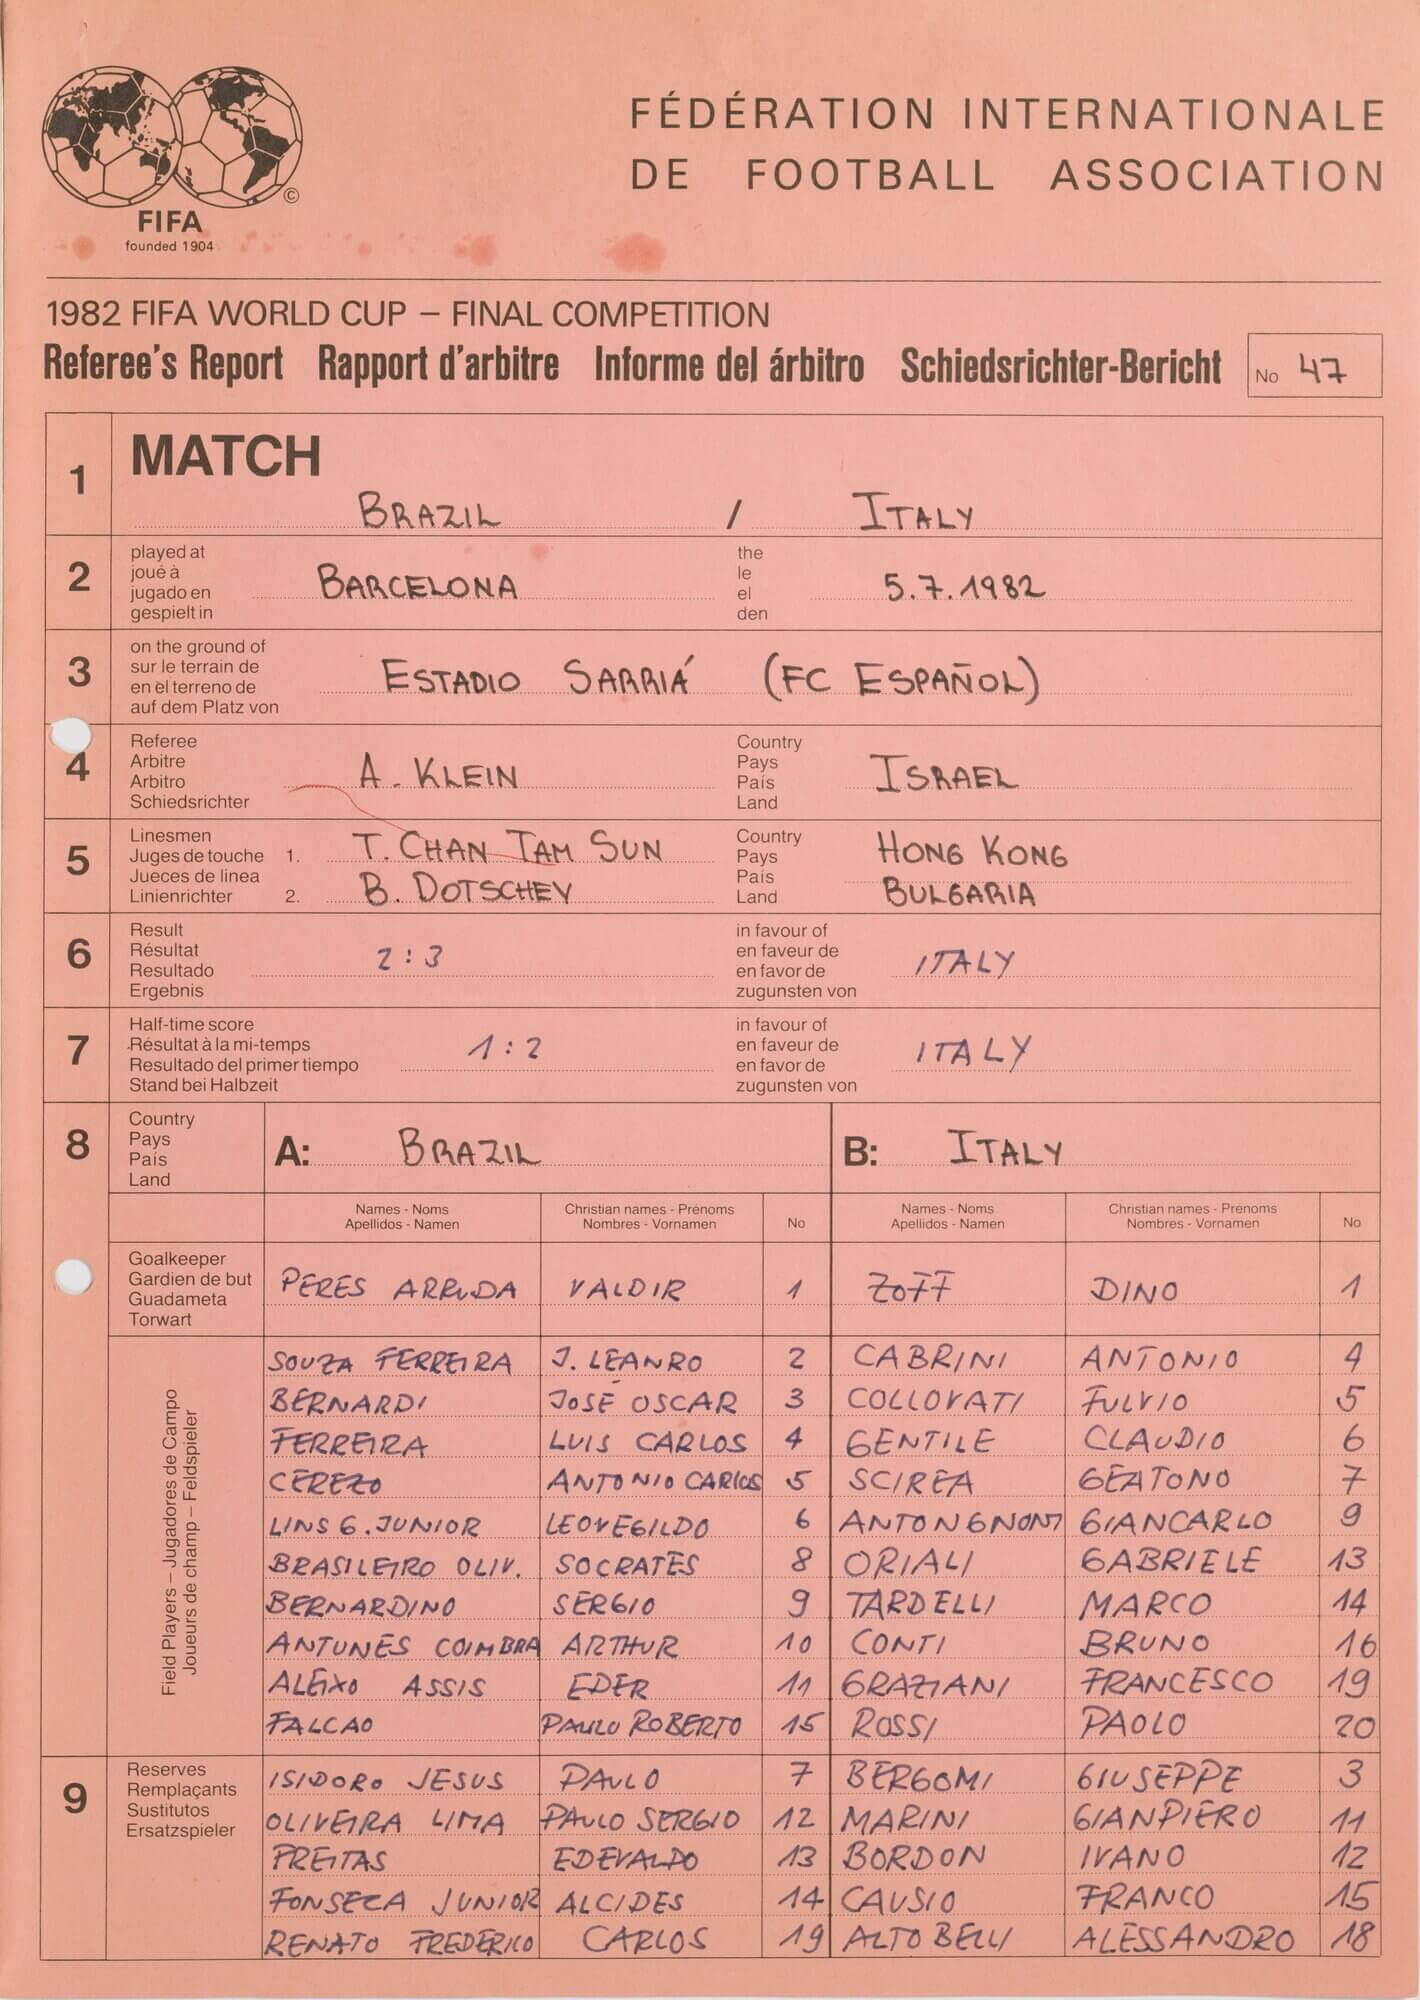 FÉDÉRATION INTERNATIONALE
DE FOOTBALL ASSOCIATION
©
FIFA
founded 1904
1982 FIFA WORLD CUP – FINAL COMPETITION
Referee's Report Rapport d'arbitre Informe del árbitro Schiedsrichter-Bericht No 47
1 MATCH
BRAZIL / ITALY
2 played at joué à jugado en gespielt in BARCELONA the le el den 5.7.1982
3 on the ground of sur le terrain de en el terreno de auf dem Platz von ESTADIO SARRIÁ (FC ESPAÑOL)
4 Referee Arbitre Arbitro Schiedsrichter A. KLEIN Country Pays País Land ISRAEL
5 Linesmen Juges de touche Jueces de linea Linienrichter
1. T. CHAN TAM SUN Country Pays País Land HONG KONG
2. B. DOTSCHEV BULGARIA
6 Result Résultat Resultado Ergebnis 2:3 in favour of en faveur de en favor de zugunsten von ITALY
7 Half-time score Résultat à la mi-temps Resultado del primer tiempo Stand bei Halbzeit 1:2 in favour of en faveur de en favor de zugunsten von ITALY
8 Country Pays País Land A: BRAZIL B: ITALY
Names - Noms Apellidos - Namen Christian names - Prénoms Nombres - Vornamen No Names - Noms Apellidos - Namen Christian names - Prénoms Nombres - Vornamen No
Goalkeeper Gardien de but Guadameta Torwart PERES ARRUDA VALDIR 1 ZOFF DINO 1
Field Players – Jugadores de Campo
Joueurs de champ – Feldspieler
SOUZA FERREIRA J. LEANRO 2 CABRINI ANTONIO 4
BERNARDI JOSÉ OSCAR 3 COLLOVATI FULVIO 5
FERREIRA LUIS CARLOS 4 GENTILE CLAUDIO 6
CEREZO ANTONIO CARLOS 5 SCIREA GEATONO 7
LINS G. JUNIOR LEOVEGILDO 6 ANTONGNONI GIANCARLO 9
BRASILEIRO OLIV. SOCRATES 8 ORIALI GABRIELE 13
BERNARDINO SERGIO 9 TARDELLI MARCO 14
ANTUNES COIMBRA ARTHUR 10 CONTI BRUNO 16
ALEIXO ASSIS EDER 11 GRAZIANI FRANCESCO 19
FALCAO PAULO ROBERTO 15 ROSSI PAOLO 20
9 Reserves Remplaçants Sustitutos Ersatzspieler
ISIDORO JESUS PAULO 7 BERGOMI GIUSEPPE 3
OLIVEIRA LIMA PAULO SERGIO 12 MARINI GIANPIERO 11
FREITAS EDEVALDO 13 BORDON IVANO 12
FONSECA JUNIOR ALCIDES 14 CAUSIO FRANCO 15
RENATO FREDERICO CARLOS 19 ALTOBELLI ALESSANDRO 18